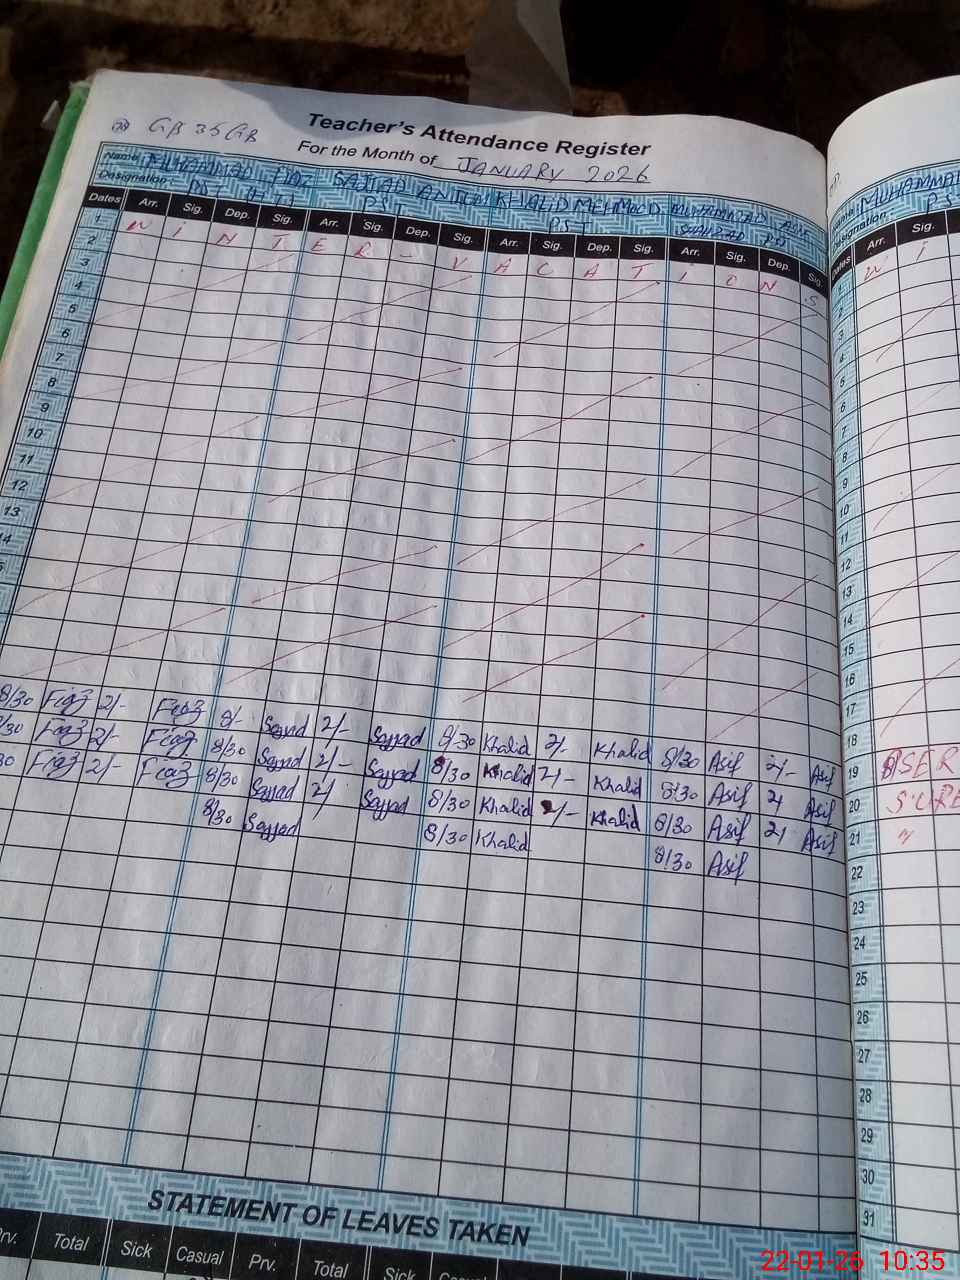 Teacher's Attendance Register
GB 35 GB
For the Month of JANUARY 2026
Name MUHAMMAD FIAZ SAJJAD ANJUM KHALID MEHMOOD MUHAMMAD ASIF
Designation PST PST PST
Dates Arr. Sig. Dep. Sig. Arr. Sig. Dep. Sig. Arr. Sig. Dep. Sig. Arr. Sig. Dep. Sig.
1
2 W I N T E R - V A C A T I O N S
3
4
5
6
7
8
9
10
11
12
13
14
8/30 Fiaz 2/- Fiaz 8/- Sajjad 2/- Sajjad 8/30 Khalid 2/- Khalid 8/30 Asif 2/- Asif
8/30 Fiaz 2/- Fiaz 8/30 Sajjad 2/- Sajjad 8/30 Khalid 2/- Khalid 8/30 Asif 2/ Asif
30 Fiaz 2/- Fiaz 8/30 Sajjad 2/ Sajjad 8/30 Khalid 2/- Khalid 8/30 Asif 2/ Asif
8/30 Sajjad 8/30 Khalid 8/30 Asif
STATEMENT OF LEAVES TAKEN
Prv. Total Sick Casual Prv. Total Sick Casual
Name MUHAMMA
Designation PS
Dates Arr. Sig.
W I
1
2
3
4
5
6
7
8
9
10
11
12
13
14
15
16
17
18
19
20
21
22
23
24
25
26
27
28
29
30
31
22-01-26 10:35